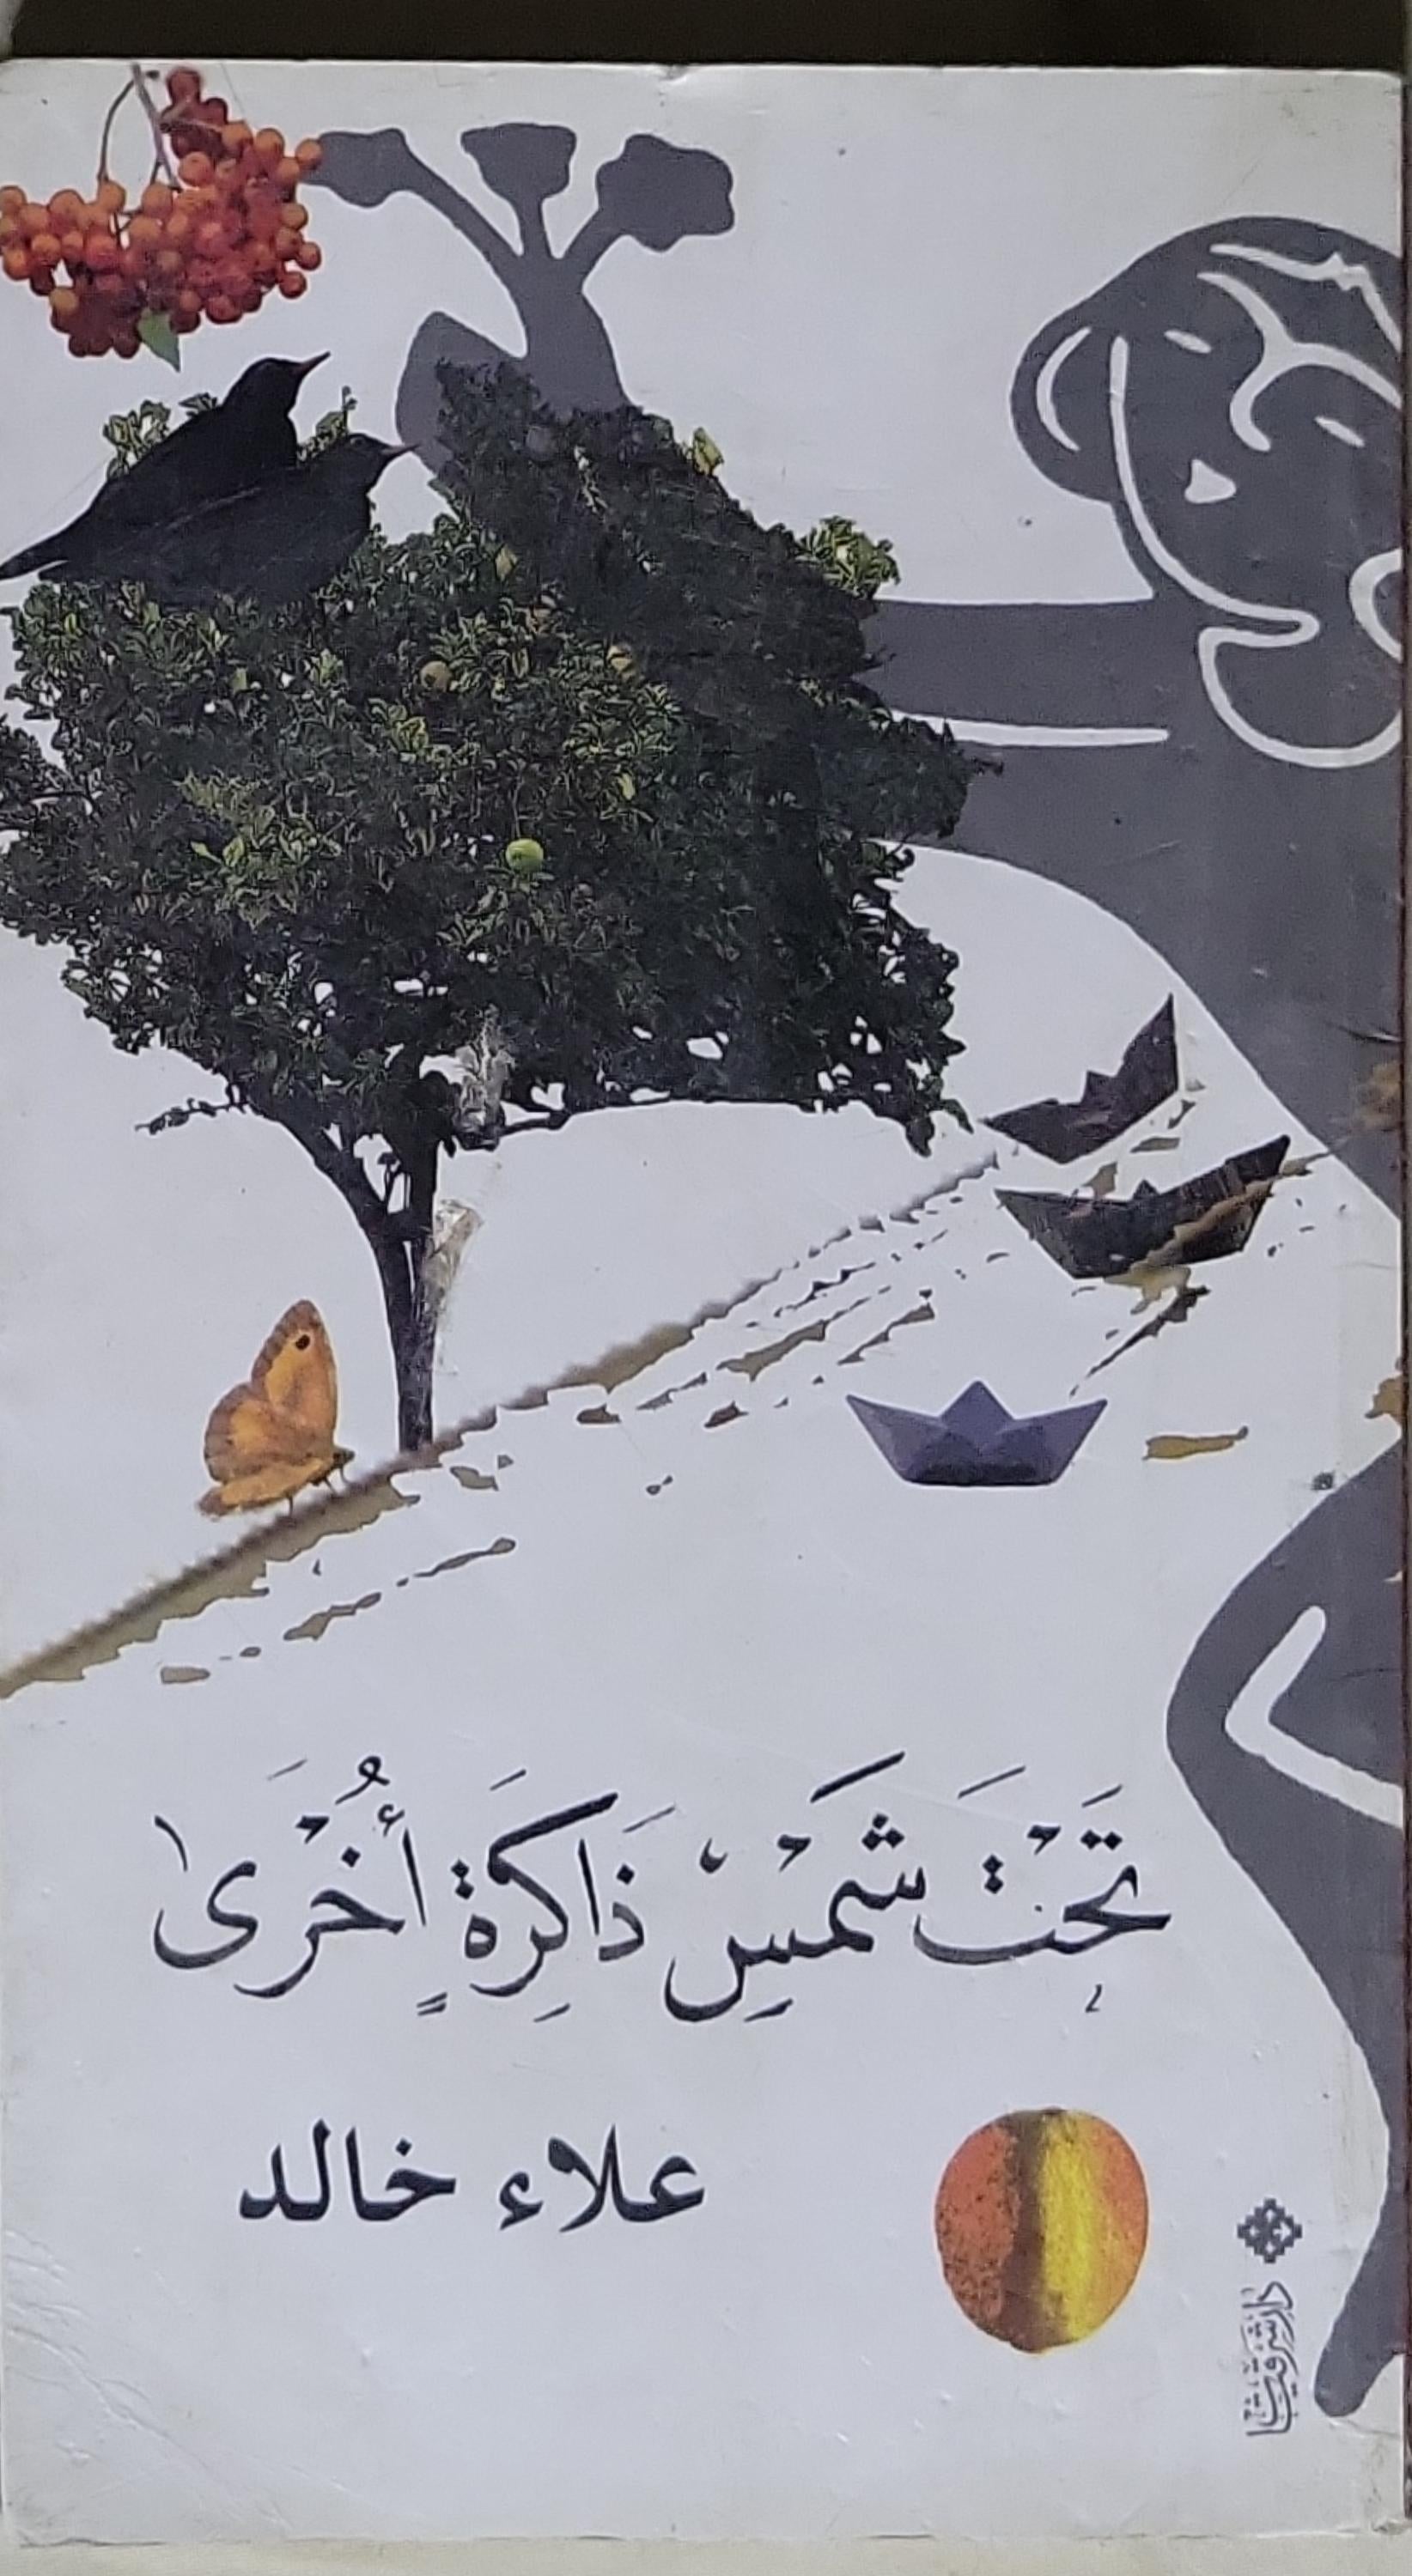 تَحْتَ شَمْسِ ذَاكِرَةٍ أُخْرَى
علاء خالد
دار شرقيات